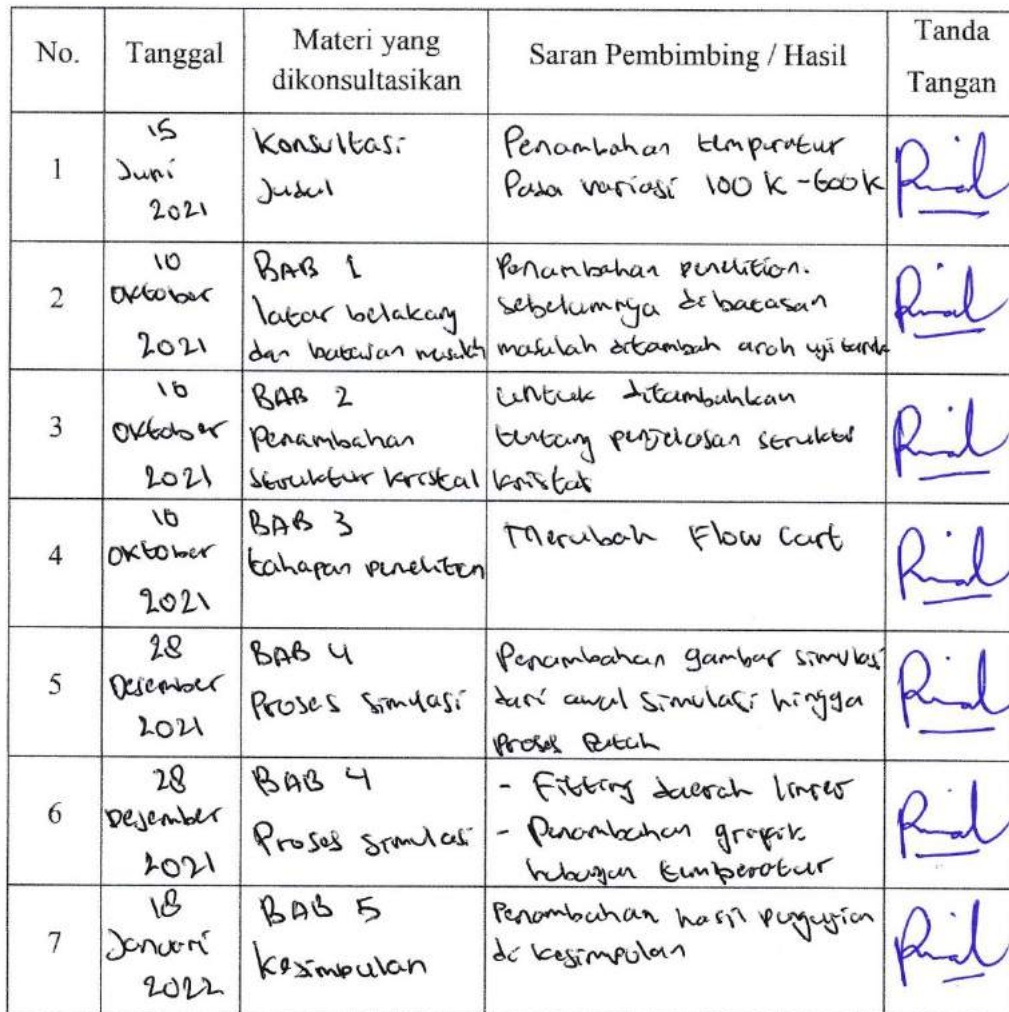 No.
Tanggal
Materi yang
dikonsultasikan
Saran Pembimbing / Hasil
Tanda
Tangan
1
15
Juni
2021
Konsultasi
Judul
Penambahan temperatur
Pada variasi 100 K - 600 K
2
10
Oktober
2021
BAB 1
latar belakang
dan batasan masalah
Penambahan penelitian.
sebelumnya dibatasan
masalah ditambah arah uji
3
10
Oktober
2021
BAB 2
Penambahan
Struktur kristal
Untuk ditambahkan
tentang penjelasan struktur
kristal
4
10
Oktober
2021
BAB 3
tahapan penelitian
Merubah Flow Cart
5
28
Desember
2021
BAB 4
Proses simulasi
Penambahan gambar simulasi
dari awal simulasi hingga
Proses Patah
6
28
Desember
2021
BAB 4
Proses simulasi
- Fitting daerah linier
- Penambahan grafik
hubungan temperatur
7
18
Januari
2022
BAB 5
Kesimpulan
Penambahan hasil pengujian
di kesimpulan